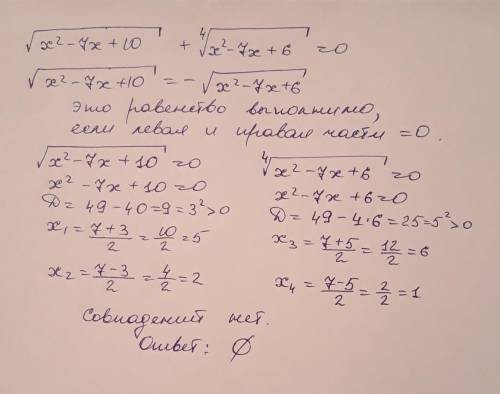 √(x² - 7x + 10) + ⁴√(x² - 7x + 6) = 0
√(x² - 7x + 10) = - √(x² - 7x + 6)
это равенство выполнимо,
если левая и правая части = 0.
√(x² - 7x + 10) = 0
x² - 7x + 10 = 0
D = 49 - 40 = 9 = 3² > 0
x₁ = (7+3)/2 = 10/2 = 5
x₂ = (7-3)/2 = 4/2 = 2
⁴√(x² - 7x + 6) = 0
x² - 7x + 6 = 0
D = 49 - 4·6 = 25 = 5² > 0
x₃ = (7+5)/2 = 12/2 = 6
x₄ = (7-5)/2 = 2/2 = 1
Совпадений нет.
Ответ: ∅